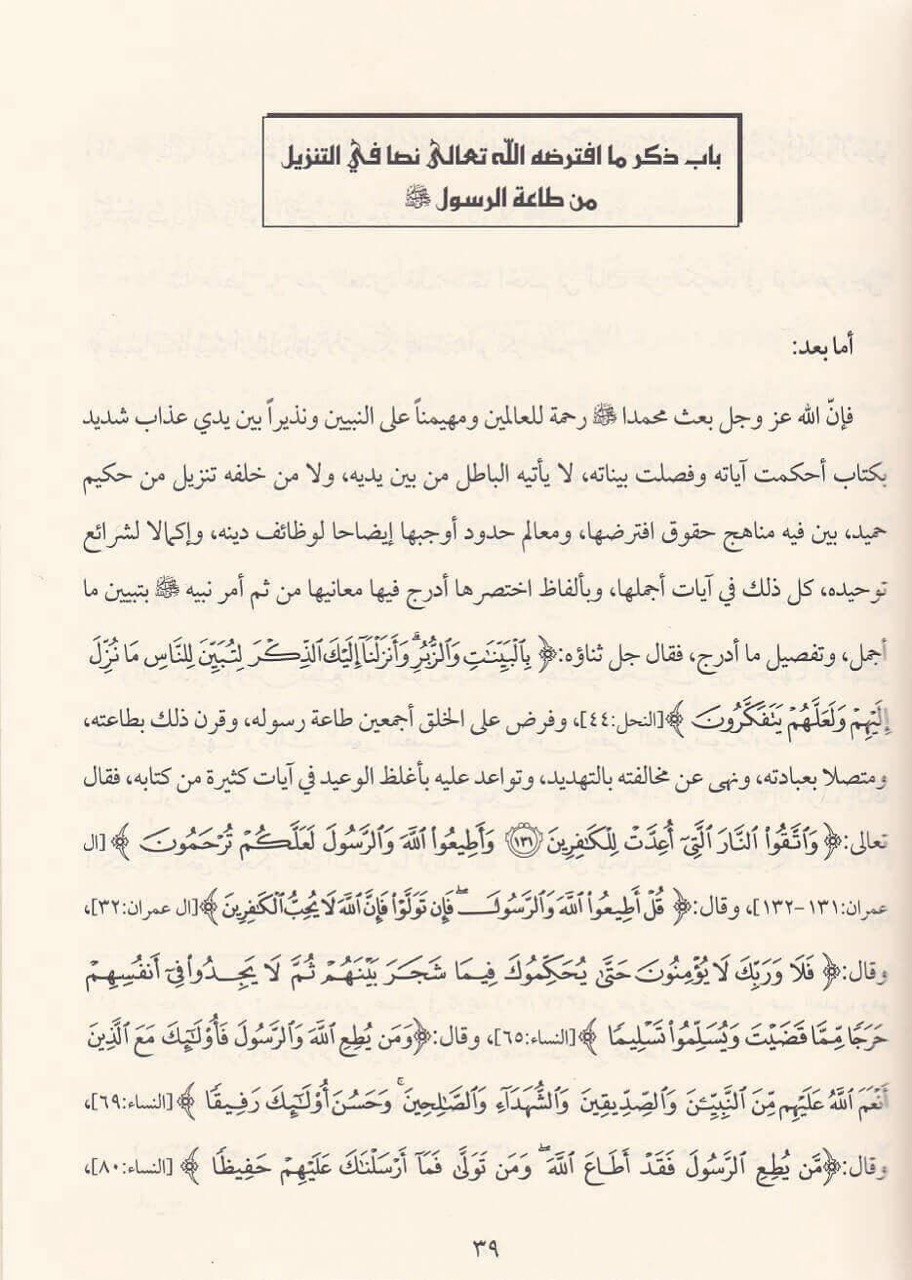 باب ذكر ما افترضه الله تعالى نصا في التنزيل
من طاعة الرسول ﷺ
أما بعد:
فإنّ الله عز وجل بعث محمدا ﷺ رحمة للعالمين ومهيمناً على النبيين ونذيراً بين يدي عذاب شديد
بكتاب أحكمت آياته وفصلت بيناته، لا يأتيه الباطل من بين يديه، ولا من خلفه تنزيل من حكيم
حميد، بين فيه مناهج حقوق افترضها، ومعالم حدود أوجبها إيضاحا لوظائف دينه، وإكمالا لشرائع
توحيده، كل ذلك في آيات أجملها، وبألفاظ اختصرها أدرج فيها معانيها من ثم أمر نبيه ﷺ بتبيين ما
أجمل، وتفصيل ما أدرج، فقال جل ثناؤه:﴿ بِالْبَيِّنَٰتِ وَالزُّبُرِ ۗ وَأَنزَلْنَآ إِلَيْكَ الذِّكْرَ لِتُبَيِّنَ لِلنَّاسِ مَا نُزِّلَ
إِلَيْهِمْ وَلَعَلَّهُمْ يَتَفَكَّرُونَ ﴾[النحل:٤٤]، وفرض على الخلق أجمعين طاعة رسوله، وقرن ذلك بطاعته،
ومتصلا بعبادته، ونهى عن مخالفته بالتهديد، وتواعد عليه بأغلظ الوعيد في آيات كثيرة من كتابه، فقال
تعالى:﴿ وَاتَّقُوا۟ النَّارَ الَّتِىٓ أُعِدَّتْ لِلْكَٰفِرِينَ ﴿١٣١﴾ وَأَطِيعُوا۟ اللَّهَ وَالرَّسُولَ لَعَلَّكُمْ تُرْحَمُونَ ﴾ [ال
عمران:١٣١-١٣٢]، وقال:﴿ قُلْ أَطِيعُوا۟ اللَّهَ وَالرَّسُولَ ۖ فَإِن تَوَلَّوْا۟ فَإِنَّ اللَّهَ لَا يُحِبُّ الْكَٰفِرِينَ ﴾[ال عمران:٣٢]،
وقال:﴿ فَلَا وَرَبِّكَ لَا يُؤْمِنُونَ حَتَّىٰ يُحَكِّمُوكَ فِيمَا شَجَرَ بَيْنَهُمْ ثُمَّ لَا يَجِدُوا۟ فِىٓ أَنفُسِهِمْ
حَرَجًا مِّمَّا قَضَيْتَ وَيُسَلِّمُوا۟ تَسْلِيمًا ﴾[النساء:٦٥]، وقال:﴿وَمَن يُطِعِ اللَّهَ وَالرَّسُولَ فَأُو۟لَٰٓئِكَ مَعَ الَّذِينَ
أَنْعَمَ اللَّهُ عَلَيْهِم مِّنَ النَّبِيِّۦنَ وَالصِّدِّيقِينَ وَالشُّهَدَآءِ وَالصَّٰلِحِينَ ۚ وَحَسُنَ أُو۟لَٰٓئِكَ رَفِيقًا ﴾[النساء:٦٩]،
وقال:﴿مَّن يُطِعِ الرَّسُولَ فَقَدْ أَطَاعَ اللَّهَ ۖ وَمَن تَوَلَّىٰ فَمَآ أَرْسَلْنَٰكَ عَلَيْهِمْ حَفِيظًا ﴾ [النساء:٨٠]،
٣٩